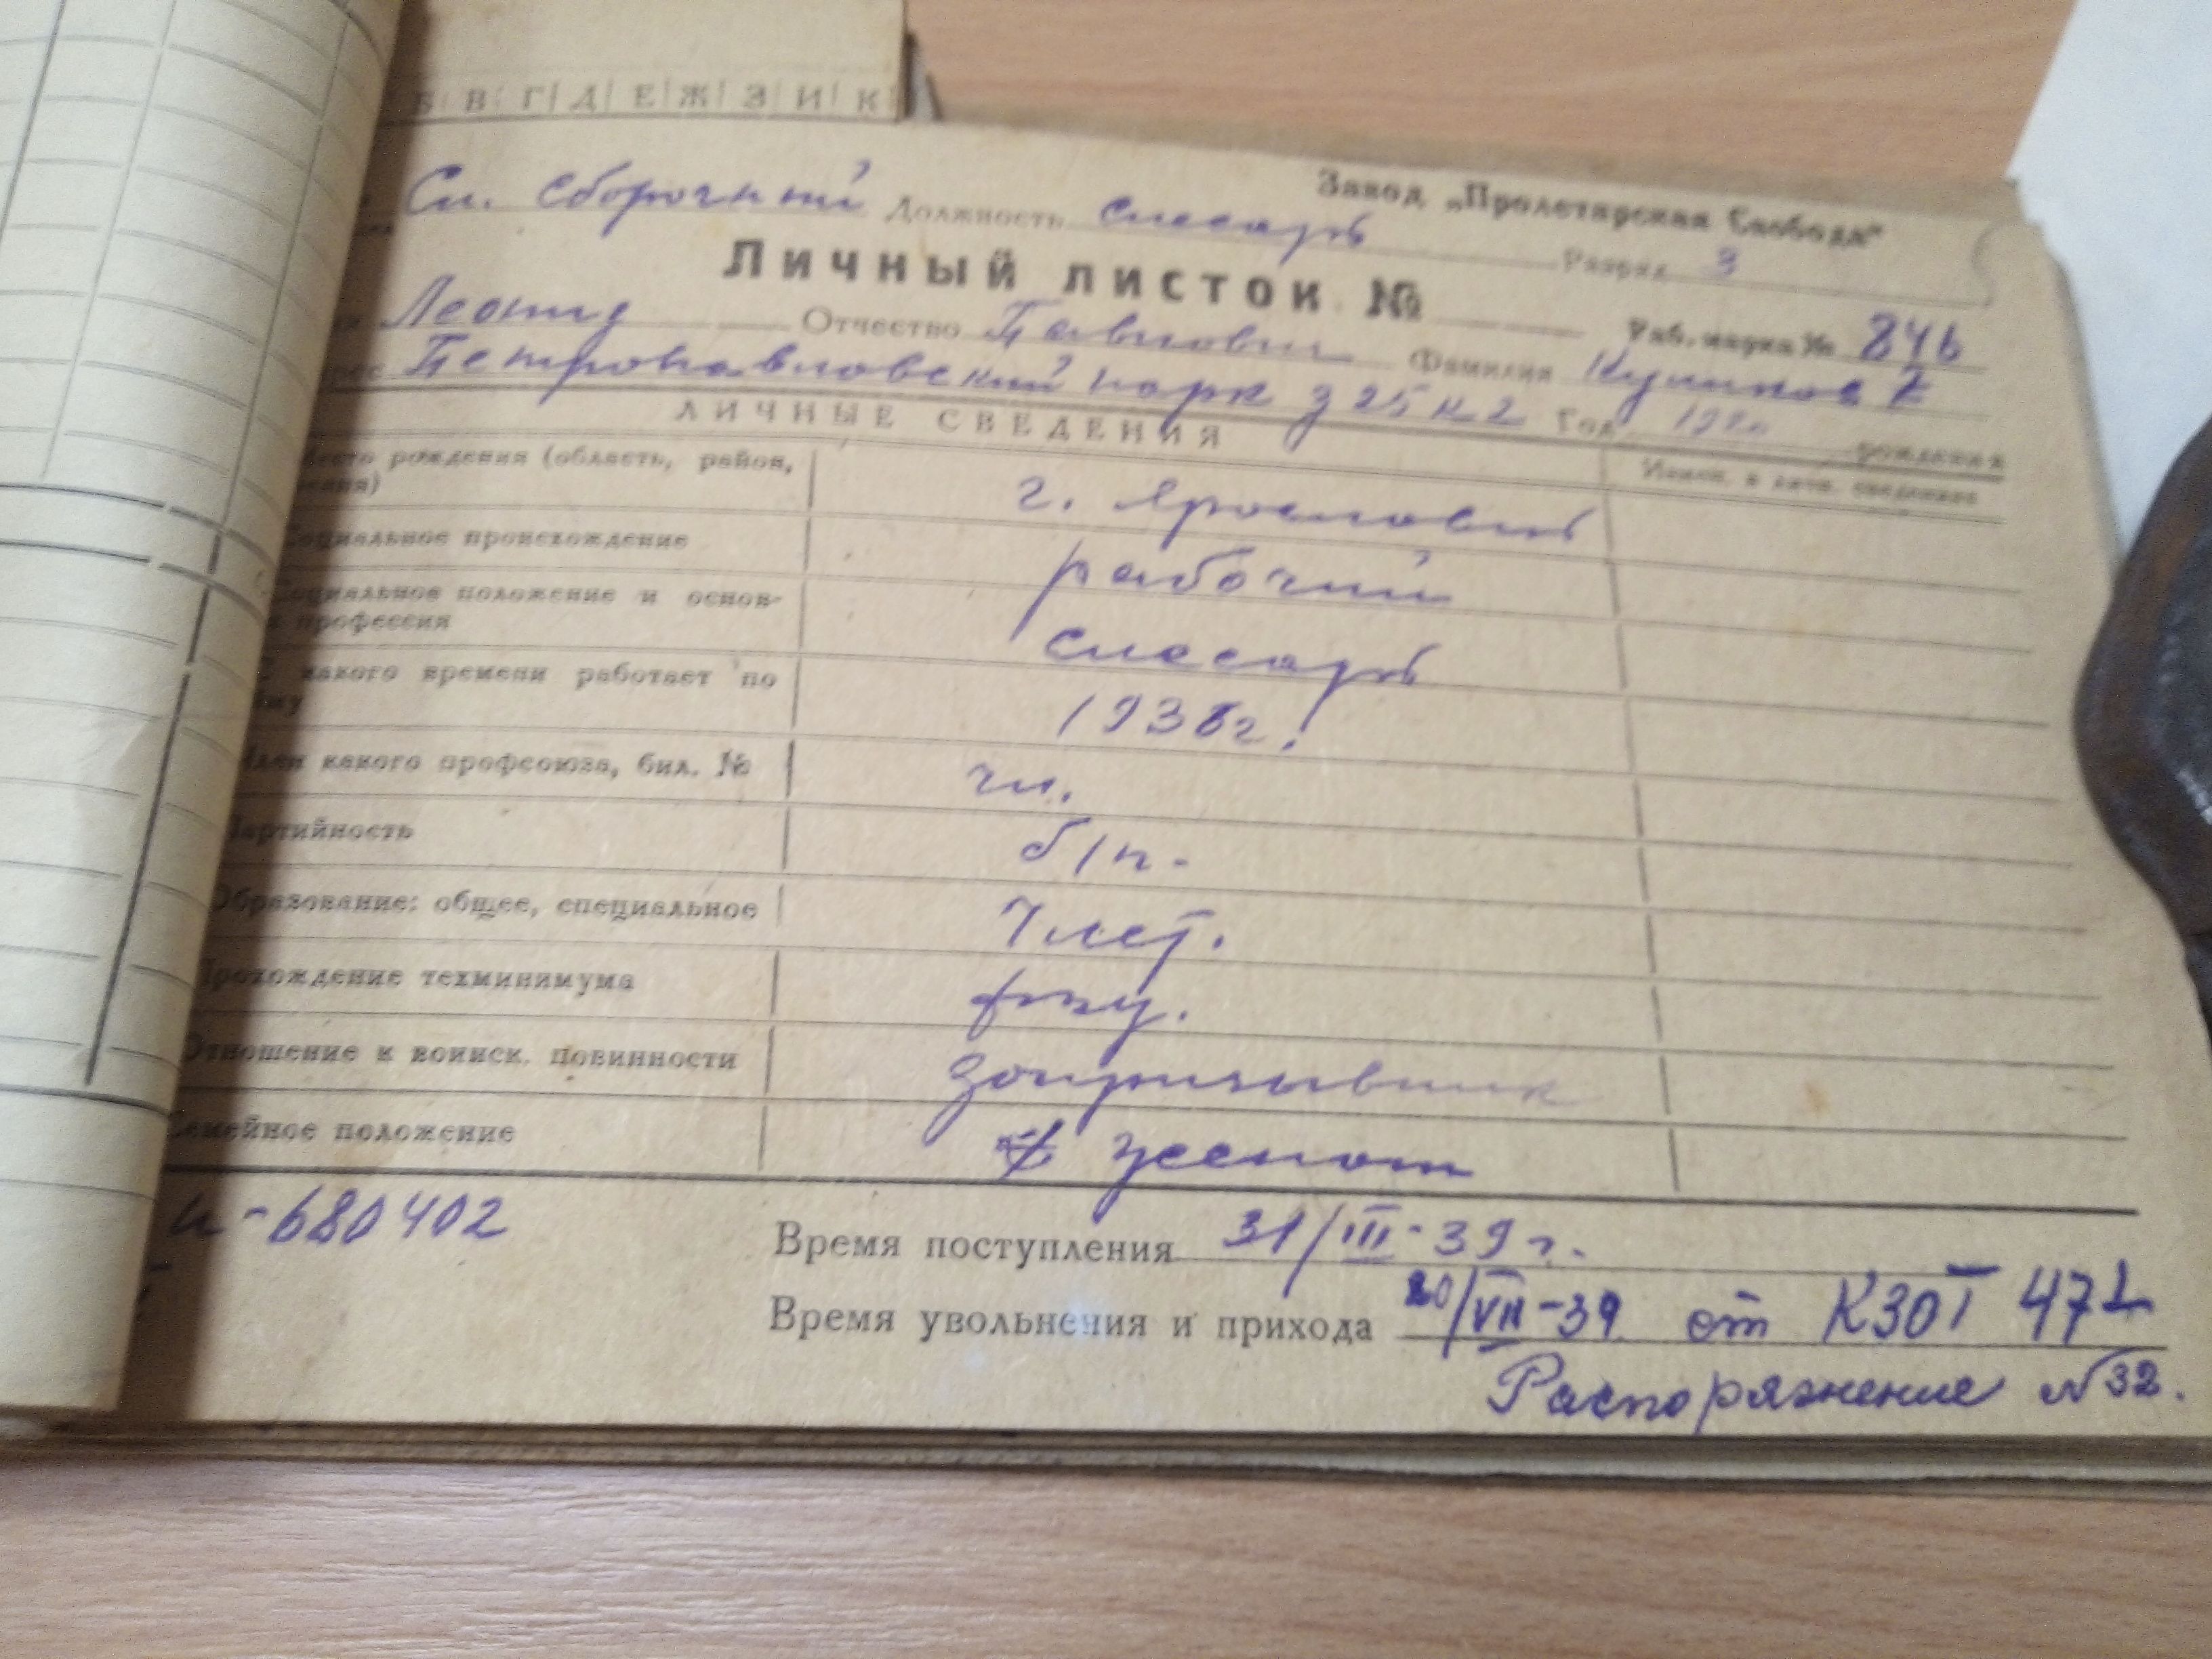 Б В Г Д Е Ж З И К
Завод „Пролетарская Свобода"
Сл. сборочный Должность слесарь Разряд 3
Личный листок №
Раб. марка № 846
Леонид Отчество Павлович Фамилия
Петропавловский парк д 25 к 2 Год рождения
ЛИЧНЫЕ СВЕДЕНИЯ
рождения (область, район, г. Ярославль
Социальное происхождение рабочий
Социальное положение и основ-
профессия слесарь
С какого времени работает по 1938г.
Член какого профсоюза, бил. № чл.
Партийность б/п.
Образование: общее, специальное 7 лет.
Прохождение техминимума фзу.
Отношение к воинск. повинности допризывник
Семейное положение холост
680402
Время поступления 31/III-39 г.
Время увольнения и прихода 20/VII-39 от КЗОТ 47
Распоряжение №32.